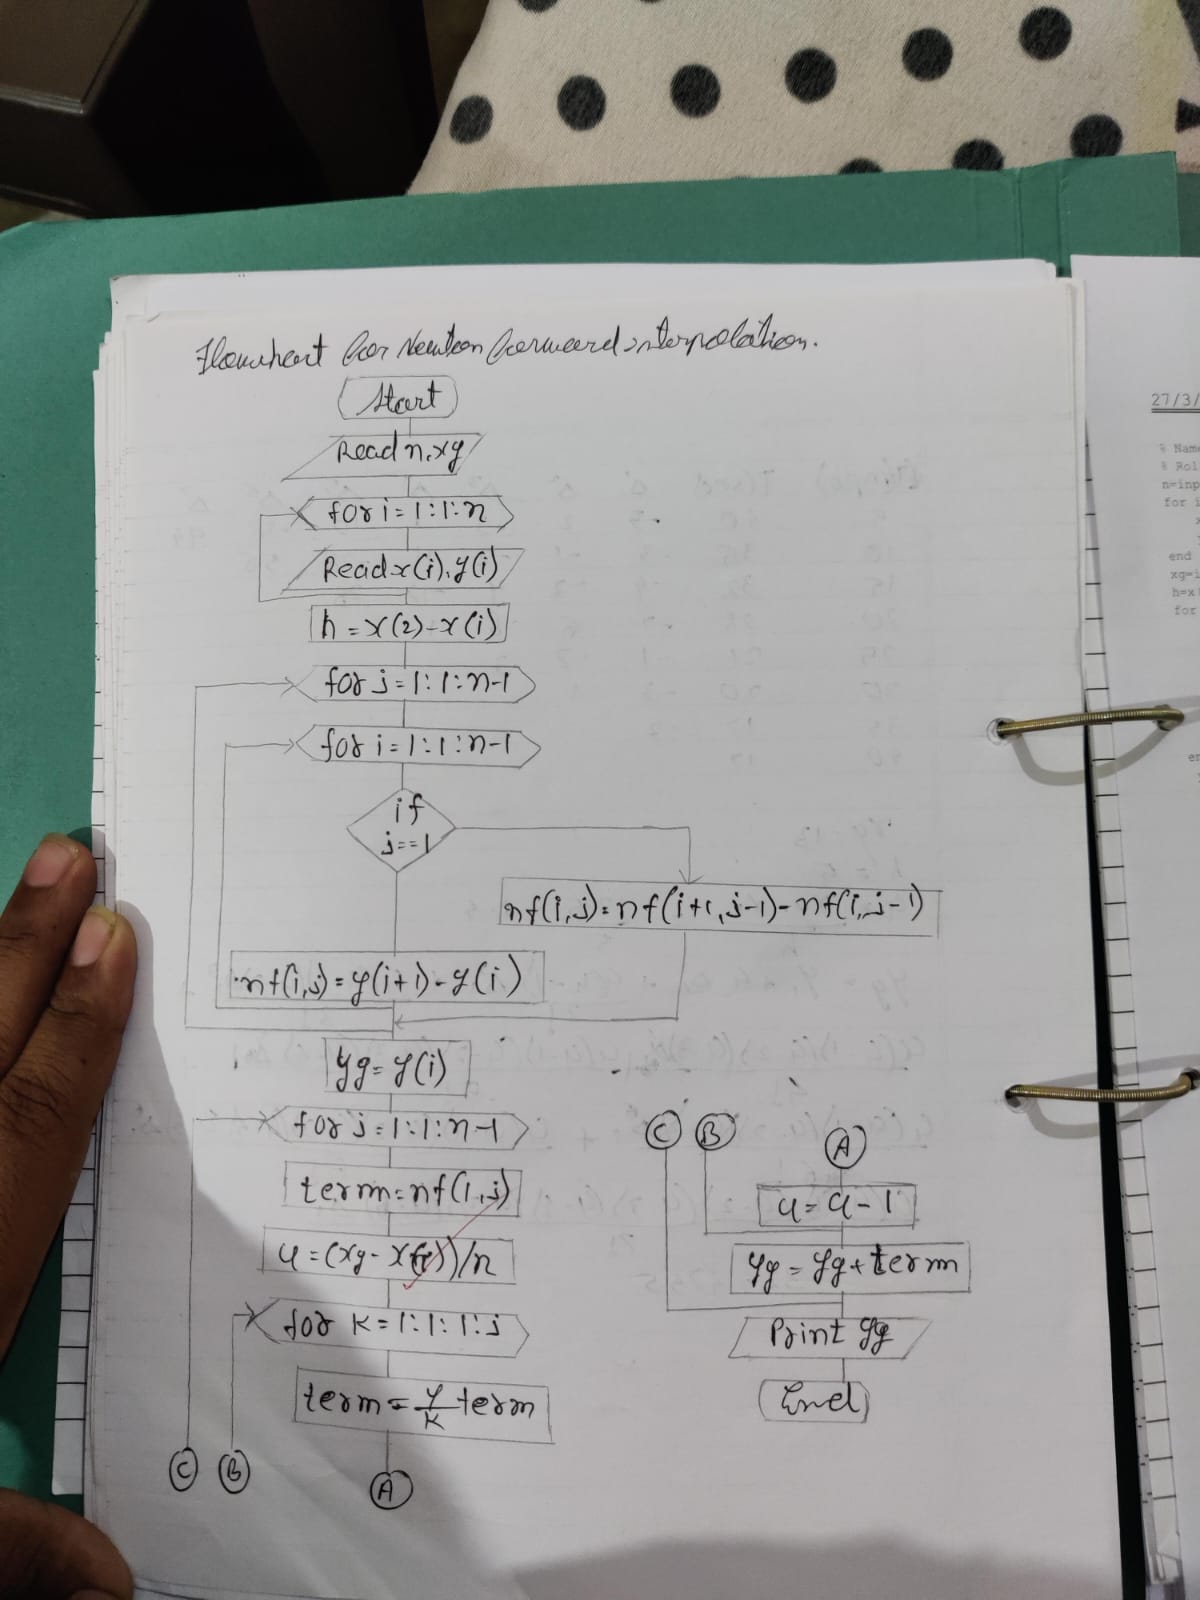 Flowchart for Newton forward interpolation.
Start
Read n, xg
for i = 1:1:n
Read x(i), y(i)
h = x(2) - x(i)
for j = 1:1:n-1
for i = 1:1:n-1
if
j==1
nf(i,j) = nf(i+1, j-1) - nf(i, j-1)
nf(i,j) = y(i+1) - y(i)
yg = y(i)
for j = 1:1:n-1
term = nf(1,j)
u = (xg - x( ))/n
for k = 1:1:1:j
term = y/k term
C
B
A
C
B
A
u = u - 1
yg = yg + term
Print yg
End
27/3/
% Name
% Rol
n=inp
for i
end
xg=i
h=x
for